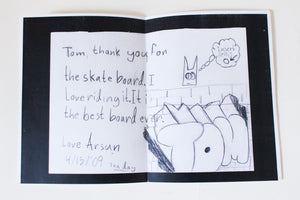 Tom, thank you for
the skateboard. I
Love riding it. It is
the best board ever.
Love Arsun
4/15/09
TOM